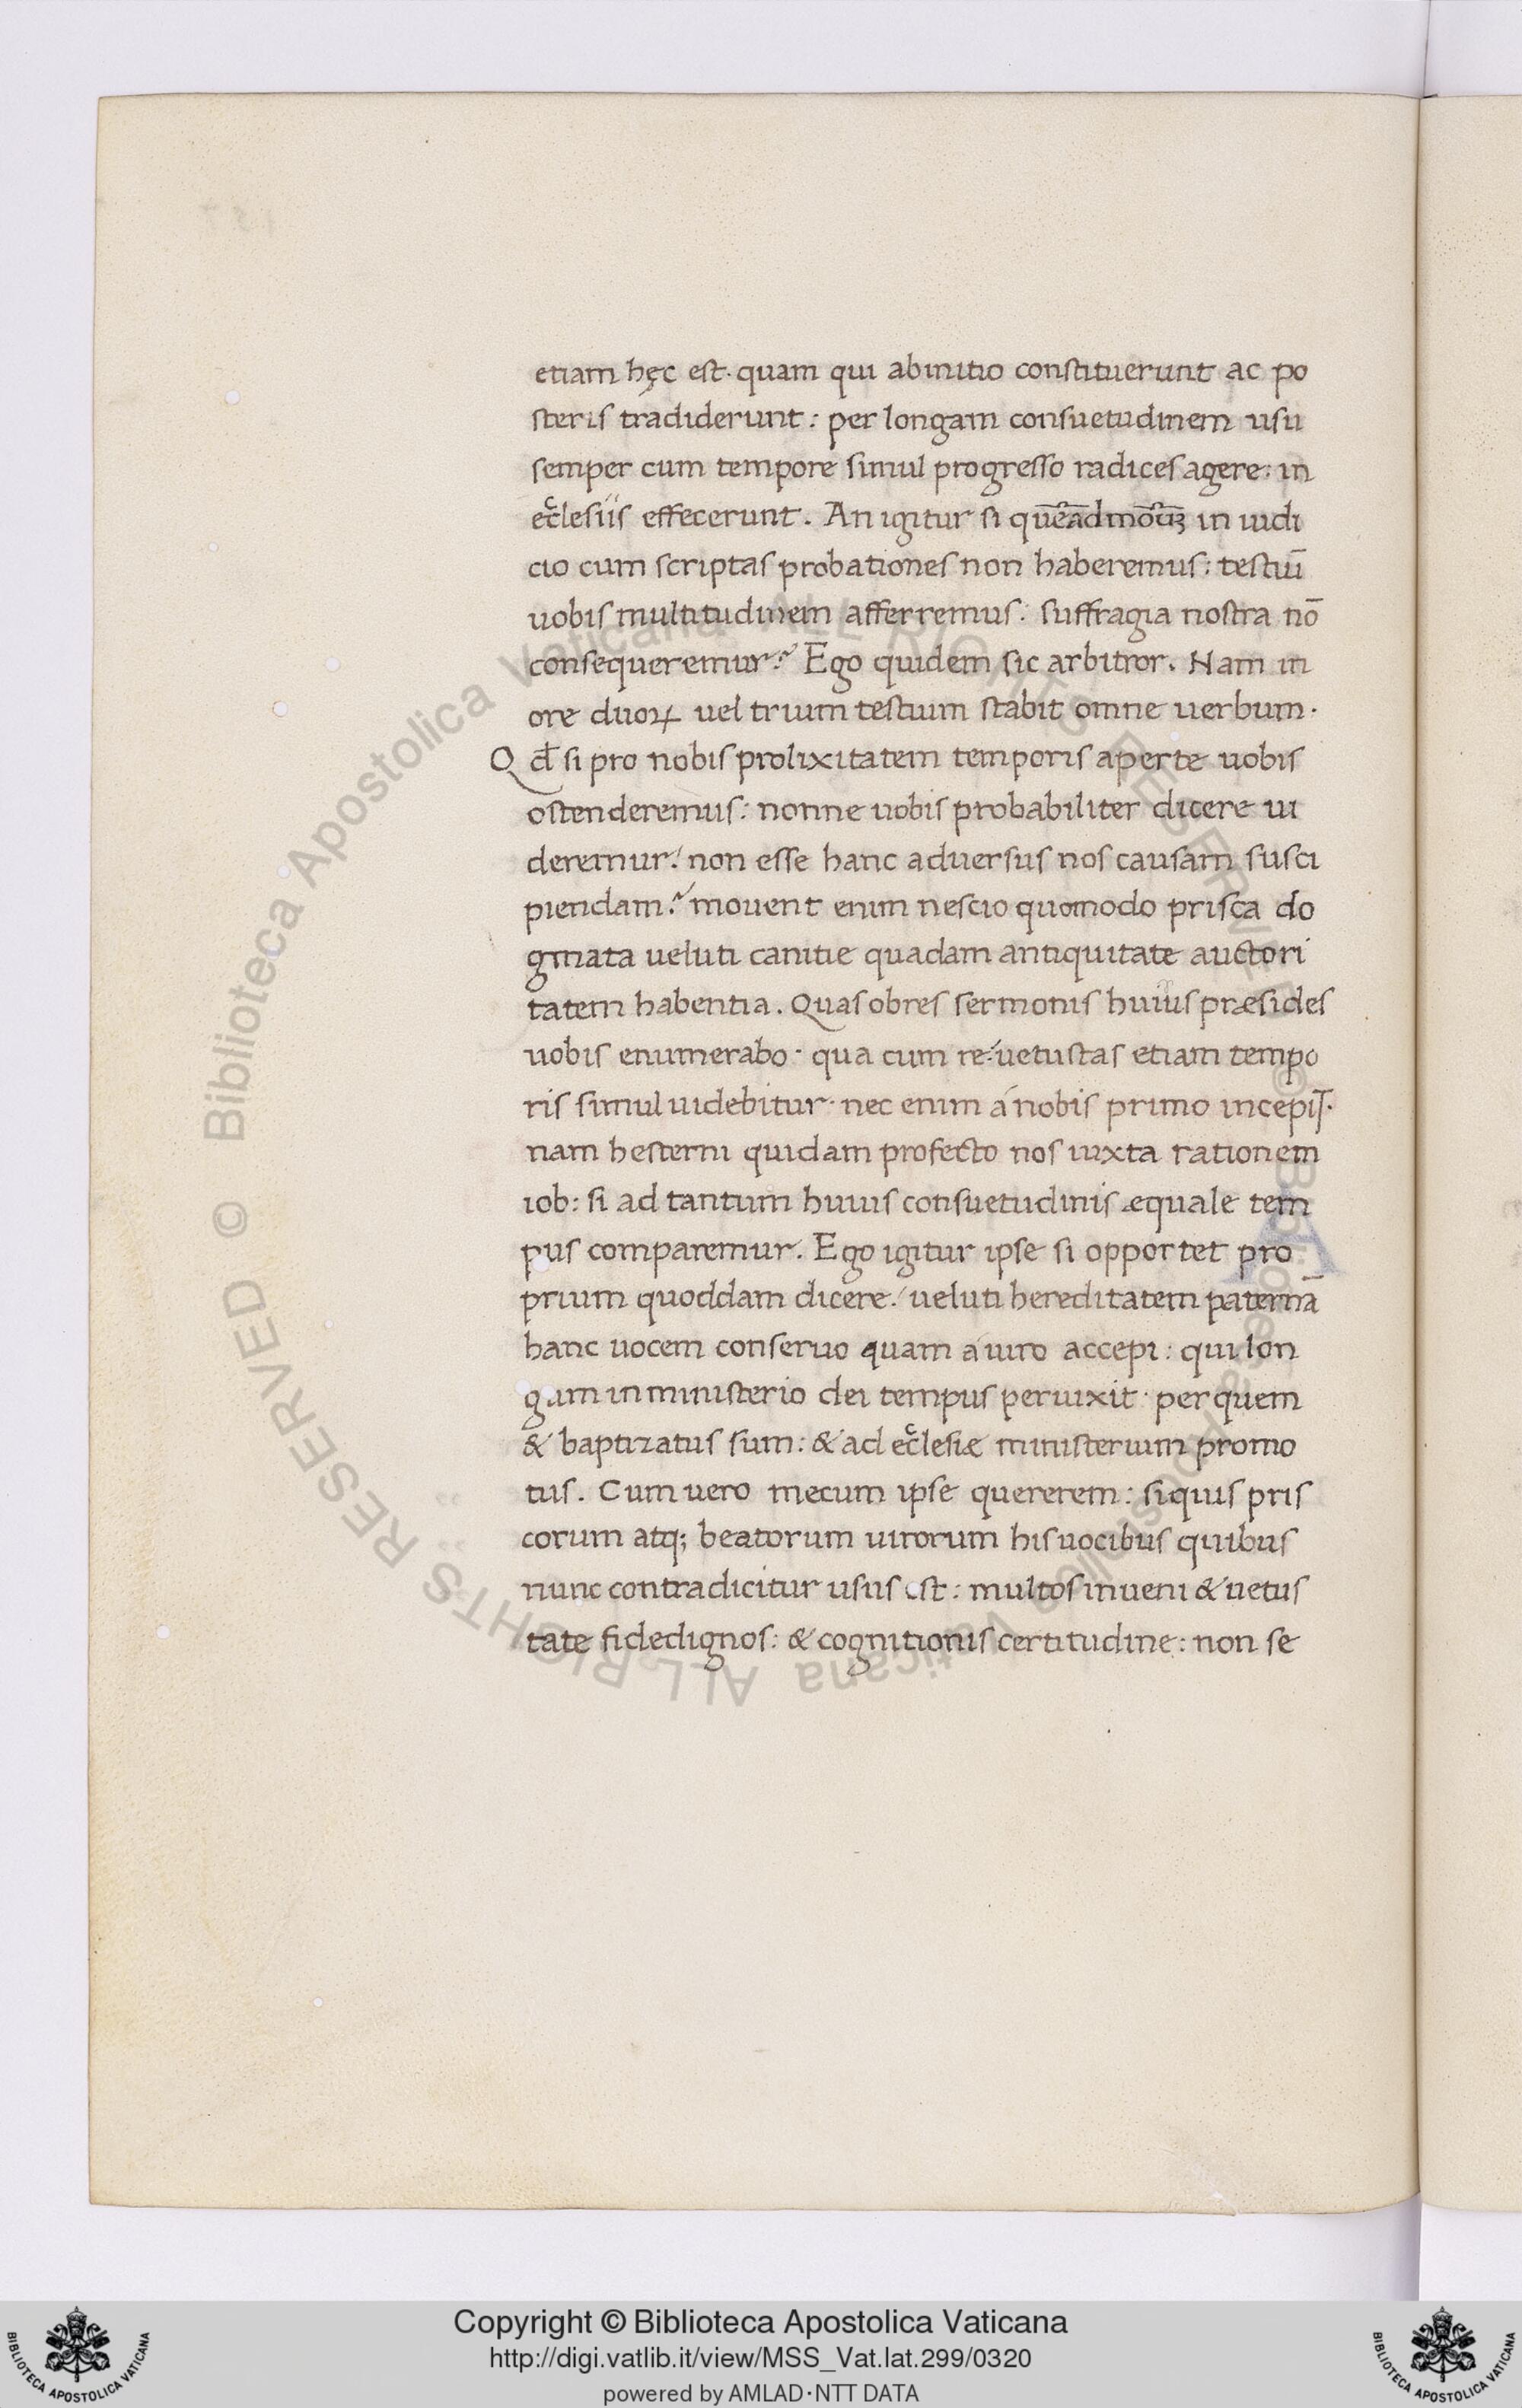 etiam hęc est. quam qui abinitio constituerunt ac po
steris tradiderunt: per longam consuetudinem usu
semper cum tempore simul progresso radices agere: in
ecclesiis effecerunt. An igitur si in iudi
cio cum scriptas probationes non haberemus: testiū
uobis multitudinem afferremus: suffragia nostra nō
consequeremur? Ego quidem sic arbitror. Nam in
ore duoꝝ uel trium testium stabit omne uerbum.
Qđ si pro nobis prolixitatem temporis aperte uobis
ostenderemus: nonne uobis probabiliter dicere ui
deremur: non esse hanc aduersus nos causam susci
piendam? mouent enim nescio quomodo prisca do
gmata ueluti canitie quadam antiquitate auctori
tatem habentia. Quasobres sermonis huius præsides
uobis enumerabo. qua cum re: uetustas etiam tempo
ris simul uidebitur. nec enim á nobis primo
nam hesterni quidam profecto nos iuxta rationem
iob: si ad tantum huius consuetudinis æquale tem
pus comparemur. Ego igitur ipse si opportet pro
prium quoddam dicere: ueluti hereditatem paternā
hanc uocem conseruo quam á uiro accepi: qui lon
gum in ministerio dei tempus peruixit. per quem
& baptizatus sum: & ad ecclesiæ ministerium promo
tus. Cum uero mecum ipse quererem: siquis pris
corum atq; beatorum uirorum his uocibus quibus
nunc contradicitur usus est: multos inueni & uetus
tate fidedignos: & cognitionis certitudine: non se
Copyright © Biblioteca Apostolica Vaticana
http://digi.vatlib.it/view/MSS_Vat.lat.299/0320
powered by AMLAD·NTT DATA
© Biblioteca Apostolica Vaticana ALL RIGHTS RESERVED
BIBLIOTECA APOSTOLICA VATICANA
BIBLIOTECA APOSTOLICA VATICANA